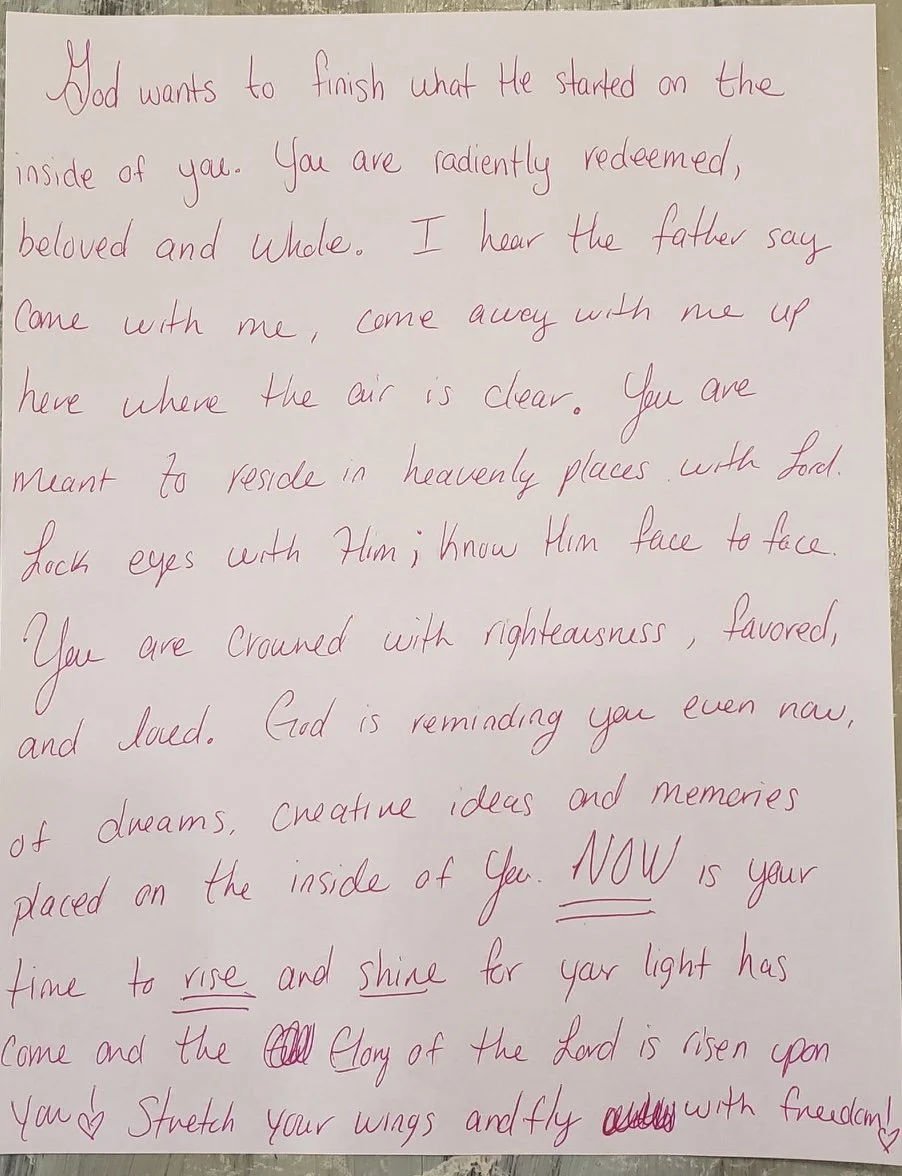 God wants to finish what He started on the
inside of you. You are radiently redeemed,
beloved and whole. I hear the father say
come with me, come away with me up
here where the air is clear. You are
meant to reside in heavenly places with Lord.
Lock eyes with Him; know Him face to face.
You are crowned with righteousness, favored,
and loved. God is reminding you even now,
of dreams, creative ideas and memories
placed on the inside of you. NOW is your
time to rise and shine for your light has
come and the Glory of the Lord is risen upon
you! Stretch your wings and fly with freedom!